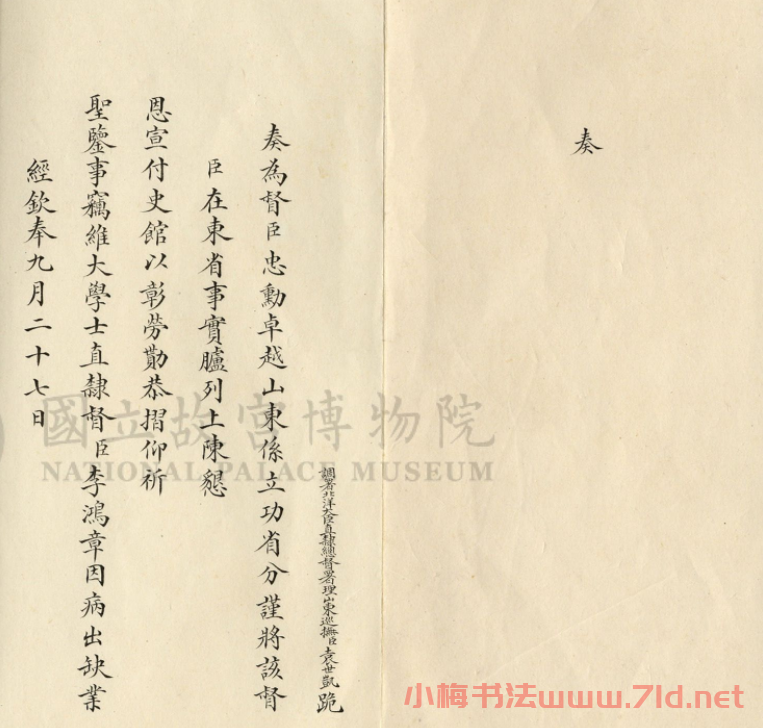 奏
調署北洋大臣直隸總督署理山東巡撫臣袁世凱跪
奏為督臣忠勳卓越山東係立功省分謹將該督
臣在東省事實臚列上陳懇
恩宣付史館以彰勞勩恭摺仰祈
聖鑒事竊維大學士直隸督臣李鴻章因病出缺業
經欽奉九月二十七日
國立故宮博物院
NATIONAL PALACE MUSEUM
小梅书法www.7ld.net